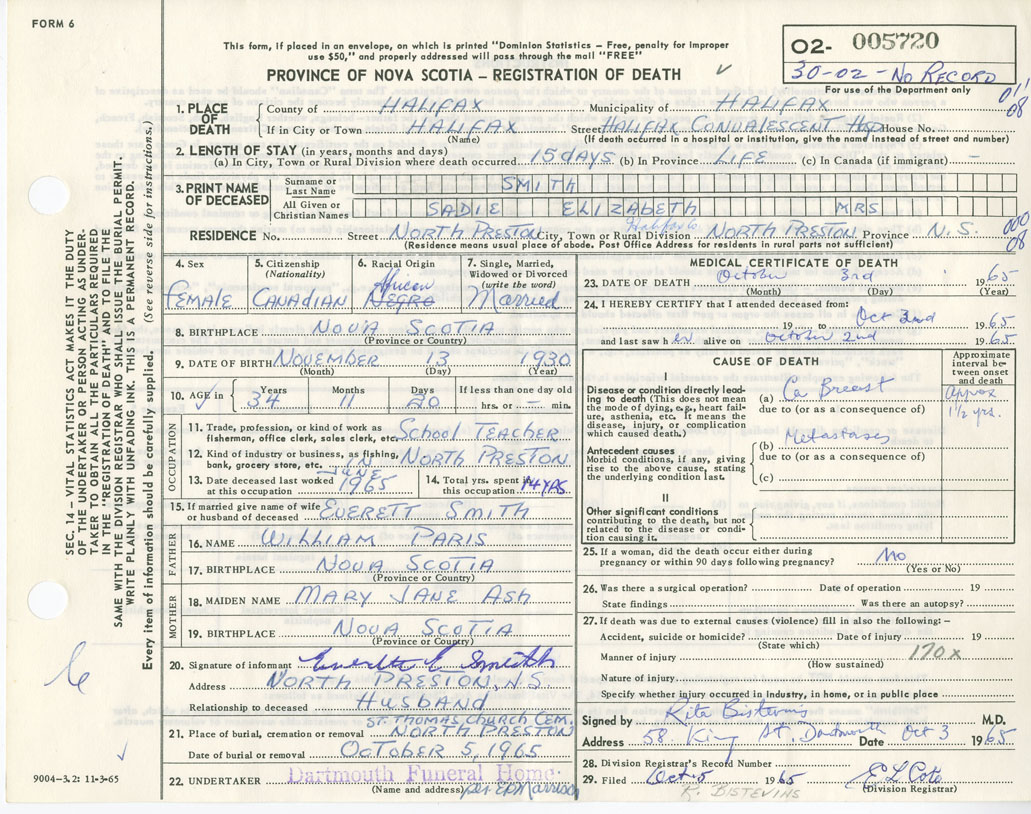 FORM 6
This form, if placed in an envelope, on which is printed "Dominion Statistics – Free, penalty for improper
use $50," and properly addressed will pass through the mail "FREE"
PROVINCE OF NOVA SCOTIA – REGISTRATION OF DEATH
02- 005720
30-02 - NO RECORD
For use of the Department only
011
08
SEC. 14 – VITAL STATISTICS ACT MAKES IT THE DUTY
OF THE UNDERTAKER OR PERSON ACTING AS UNDER-
TAKER TO OBTAIN ALL THE PARTICULARS REQUIRED
IN THE "REGISTRATION OF DEATH" AND TO FILE THE
SAME WITH THE DIVISION REGISTRAR WHO SHALL ISSUE THE BURIAL PERMIT.
WRITE PLAINLY WITH UNFADING INK. THIS IS A PERMANENT RECORD.
Every item of information should be carefully supplied. (See reverse side for instructions.)
1. PLACE OF DEATH
County of HALIFAX Municipality of HALIFAX
If in City or Town HALIFAX Street HALIFAX CONVALESCENT Hsp House No.
(Name) (If death occurred in a hospital or institution, give the name instead of street and number)
2. LENGTH OF STAY (in years, months and days)
(a) In City, Town or Rural Division where death occurred 15 days (b) In Province LIFE (c) In Canada (if immigrant) –
3. PRINT NAME OF DECEASED
Surname or Last Name SMITH
All Given or Christian Names SADIE ELIZABETH MRS
Halifax
RESIDENCE No. Street NORTH PRESTON City, Town or Rural Division NORTH PRESTON Province N.S.
000
08
(Residence means usual place of abode. Post Office Address for residents in rural parts not sufficient)
4. Sex FEMALE
5. Citizenship (Nationality) CANADIAN
6. Racial Origin African NEGRO
7. Single, Married, Widowed or Divorced (write the word) Married
8. BIRTHPLACE NOVA SCOTIA
(Province or Country)
9. DATE OF BIRTH NOVEMBER 13 1930
(Month) (Day) (Year)
10. AGE in Years 34 Months 11 Days 20 If less than one day old hrs. or – min.
OCCUPATION
11. Trade, profession, or kind of work as
fisherman, office clerk, sales clerk, etc. School TEACHER
12. Kind of industry or business, as fishing,
bank, grocery store, etc. IN NORTH PRESTON
13. Date deceased last worked at this occupation JUNE 1965
14. Total yrs. spent in this occupation 14 YRS
15. If married give name of wife
or husband of deceased EVERETT SMITH
FATHER
16. NAME WILLIAM PARIS
17. BIRTHPLACE NOVA SCOTIA
(Province or Country)
MOTHER
18. MAIDEN NAME MARY JANE ASH
19. BIRTHPLACE NOVA SCOTIA
(Province or Country)
20. Signature of informant Everett E Smith
Address NORTH PRESTON, N.S.
Relationship to deceased HUSBAND
ST. THOMAS CHURCH CEM.
21. Place of burial, cremation or removal NORTH PRESTON
Date of burial or removal OCTOBER 5, 1965
22. UNDERTAKER Dartmouth Funeral Home
(Name and address) per
9004–3.2: 11-3-65
MEDICAL CERTIFICATE OF DEATH
23. DATE OF DEATH October 3rd 1965
(Month) (Day) (Year)
24. I HEREBY CERTIFY that I attended deceased from:
19 to Oct 2nd 1965
and last saw her alive on October 2nd 1965
CAUSE OF DEATH
Approximate interval between onset and death
I
Disease or condition directly lead-
ing to death (This does not mean
the mode of dying, e.g., heart fail-
ure, asthenia, etc. It means the
disease, injury, or complication
which caused death.)
(a) Ca Breast Approx 1½ yrs.
due to (or as a consequence of)
(b) Metastases
Antecedent causes
Morbid conditions, if any, giving
rise to the above cause, stating
the underlying condition last.
due to (or as a consequence of)
(c)
II
Other significant conditions
contributing to the death, but not
related to the disease or condi-
tion causing it.
25. If a woman, did the death occur either during
pregnancy or within 90 days following pregnancy? No
(Yes or No)
26. Was there a surgical operation? Date of operation 19
State findings Was there an autopsy?
27. If death was due to external causes (violence) fill in also the following: –
Accident, suicide or homicide? Date of injury 19
(State which)
Manner of injury 170x
(How sustained)
Nature of injury
Specify whether injury occurred in industry, in home, or in public place
Signed by Rita Bistevins M.D.
Address 58 King St. Dartmouth Date Oct 3 1965
28. Division Registrar's Record Number
29. Filed Oct 5 1965 E L Cote
(Division Registrar)
R. BISTEVINS